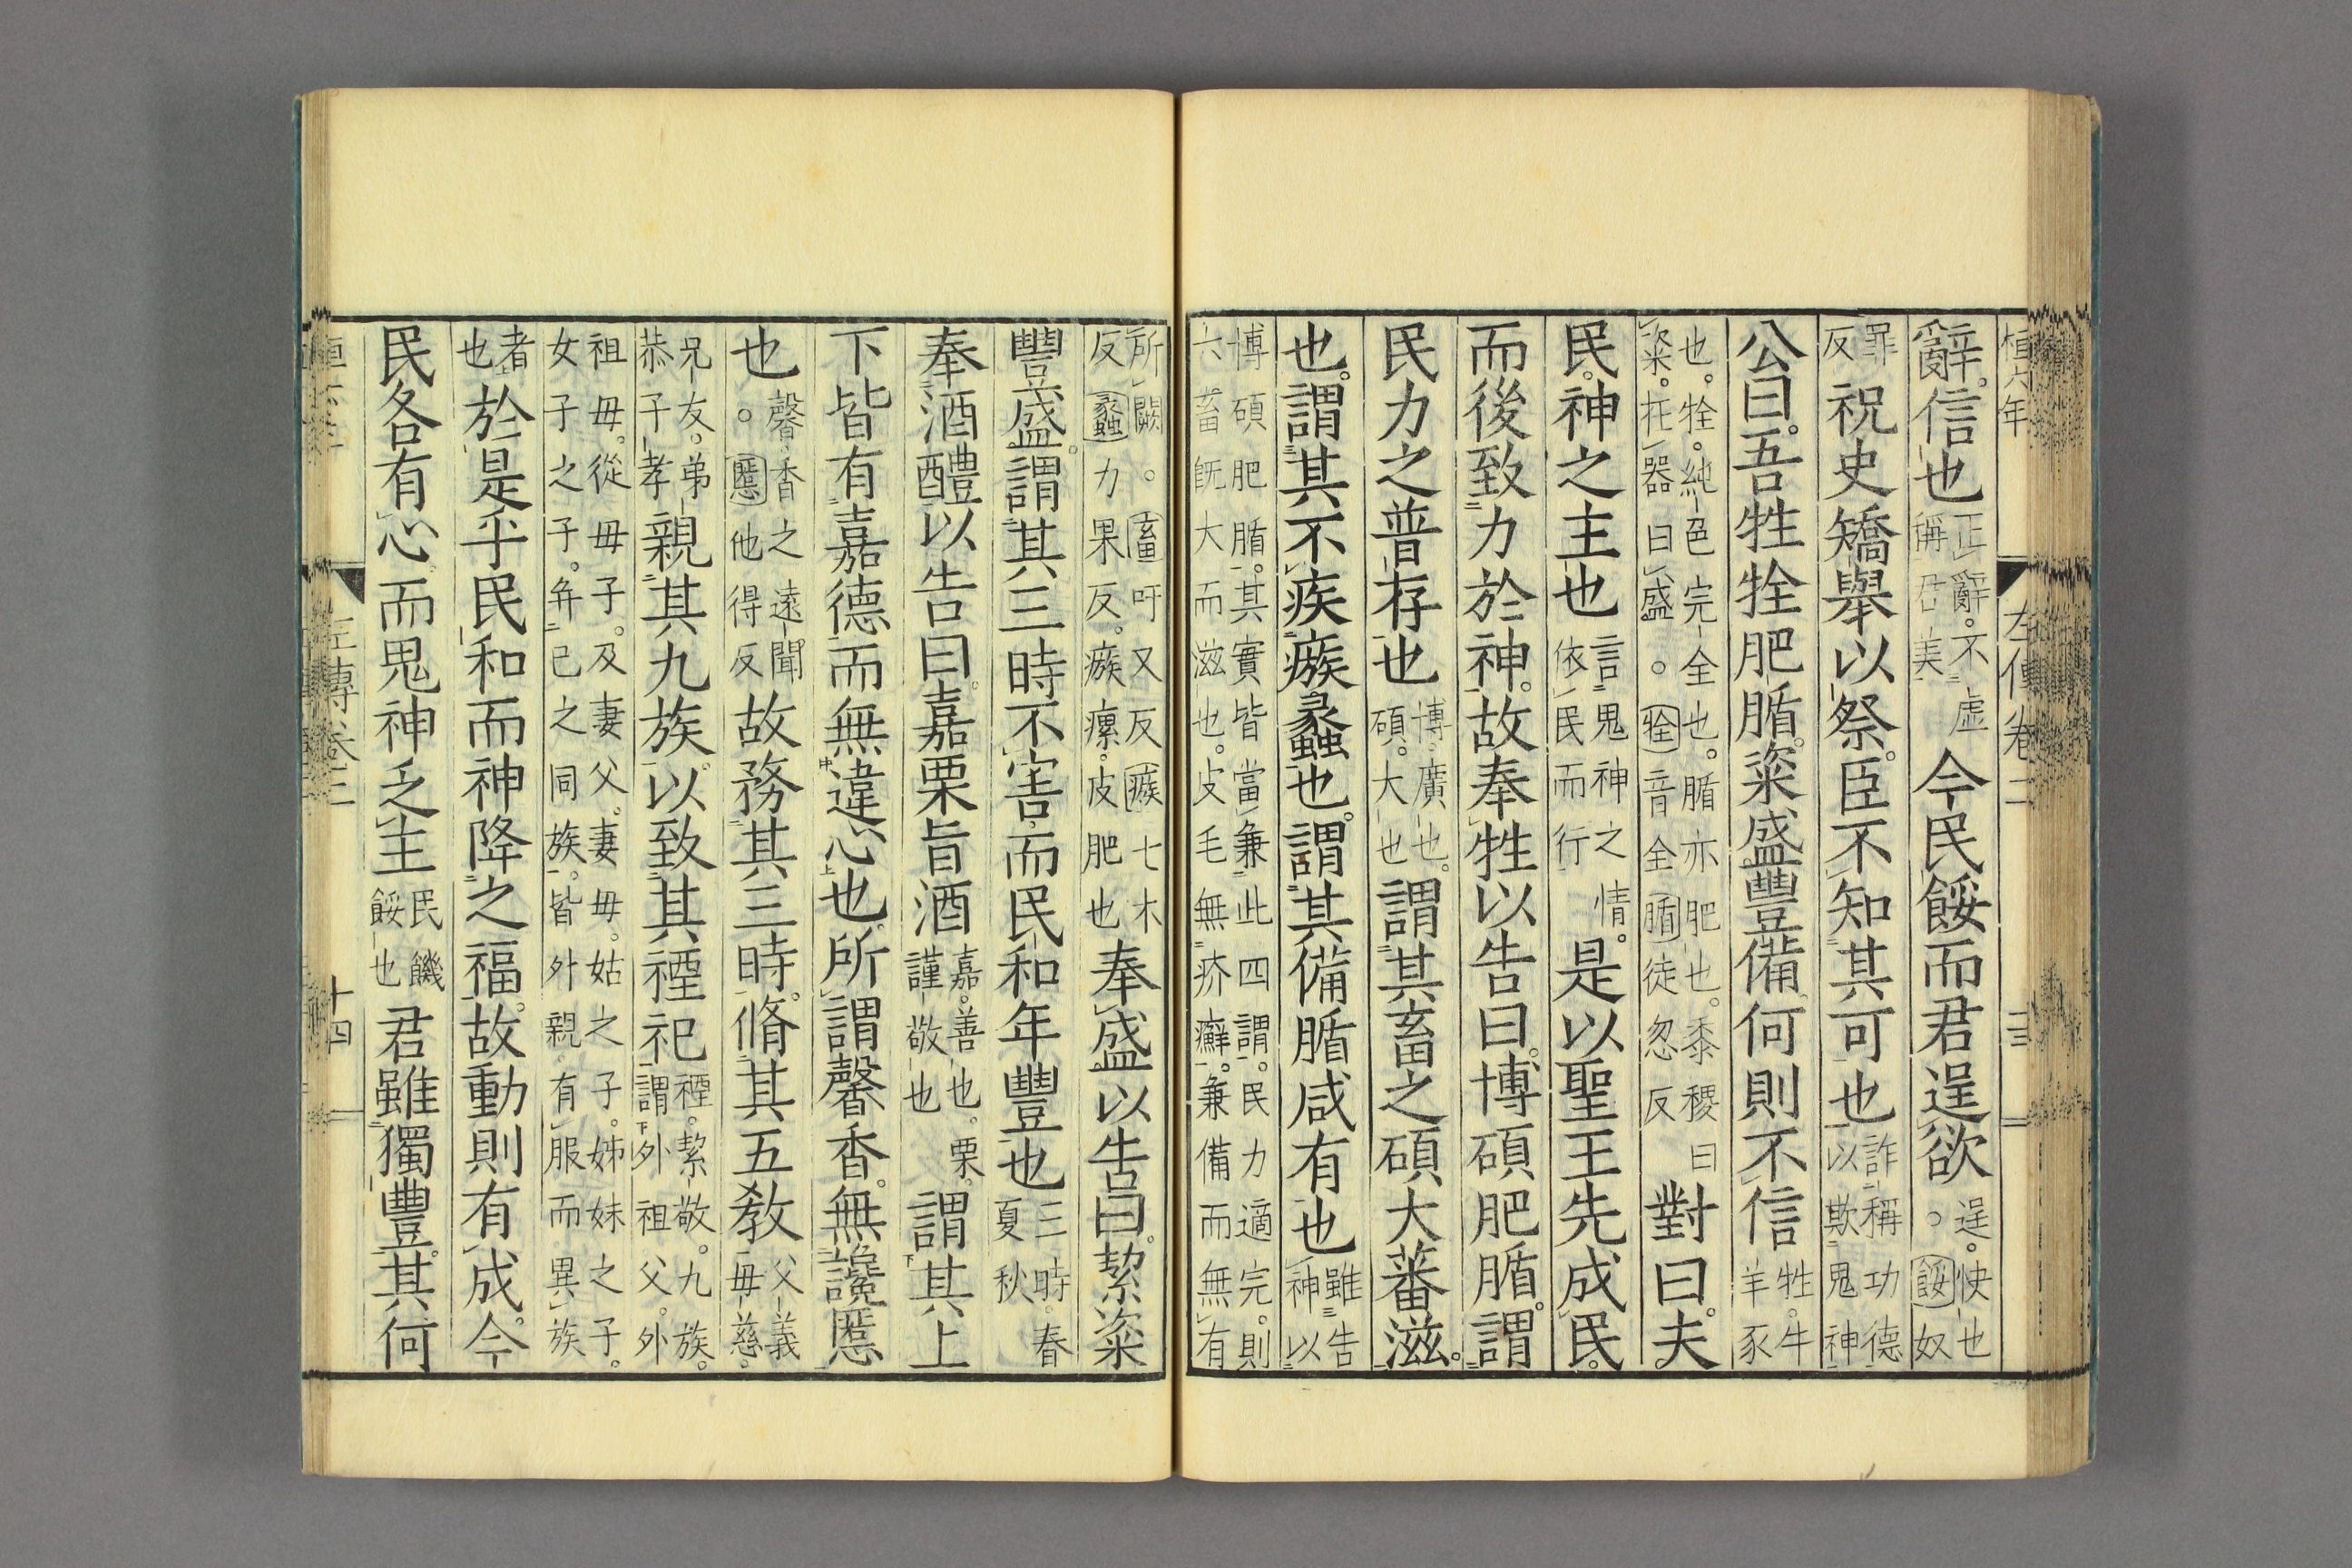 桓六年 左傳卷二
辭信也正辭不虛稱君美今民餒而君逞欲逞快也餒奴
罪反祝史矯舉以祭臣不知其可也詐稱功德以欺鬼神
公曰吾牲牷肥腯粢盛豐備何則不信牲牛羊豕
也牷純色完全也腯亦肥也黍稷曰粢在器曰盛牷音全腯徒忽反對曰夫
民神之主也言鬼神之情依民而行是以聖王先成民
而後致力於神故奉牲以告曰博碩肥腯謂
民力之普存也博廣也碩大也謂其畜之碩大蕃滋
也謂其不疾瘯蠡也謂其備腯咸有也雖告神以
博碩肥腯其實皆當兼此四謂民力適完則六畜既大而滋也皮毛無疥癬兼備而無有
所闕畜吁又反瘯七木反蠡力果反瘯瘰皮肥也奉盛以告曰絜粢
豐盛謂其三時不害而民和年豐也三時春夏秋
奉酒醴以告曰嘉栗旨酒嘉善也栗謹敬也謂其上
下皆有嘉德而無違心也所謂馨香無讒慝
也馨香之遠聞慝他得反故務其三時脩其五教父義母慈
兄友弟恭子孝親其九族以致其禋祀禋絜敬九族謂外祖父外
祖母從母子及妻父妻母姑之子姊妹之子女子之子并己之同族皆外親有服而異族
者也於是乎民和而神降之福故動則有成今
民各有心而鬼神乏主民饑餒也君雖獨豐其何
桓六年 左傳卷二 十四